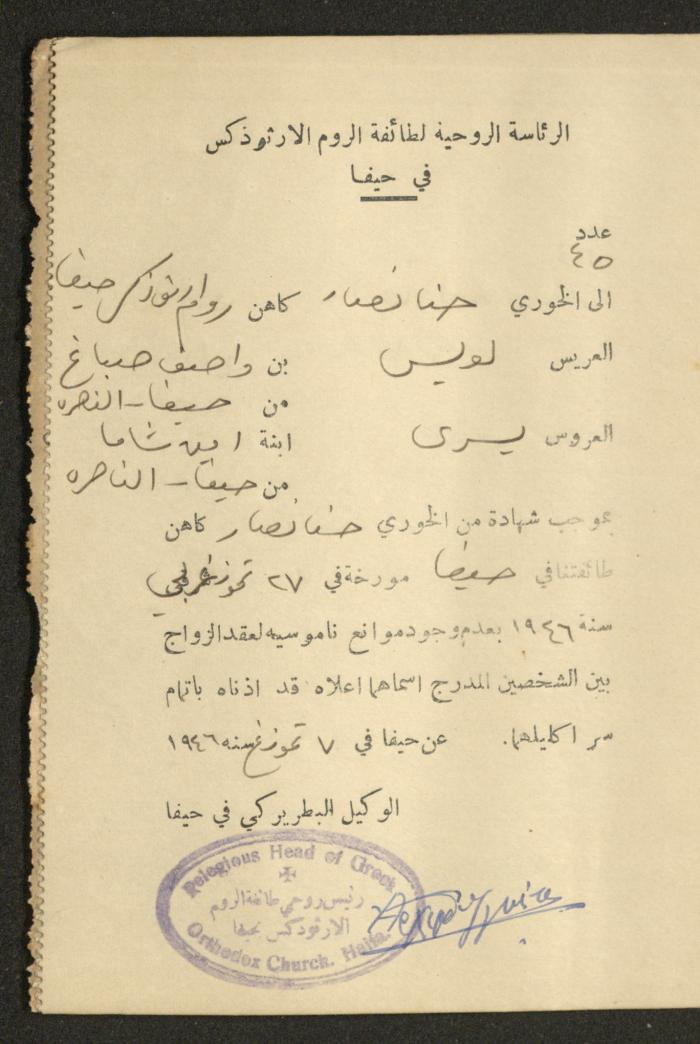 الرئاسة الروحية لطائفة الروم الارثوذكس
في حيفا
عدد
٤٥
الى الخوري حنا نصار كاهن روم ارثوذكس حيفا
العريس لويس بن واصف صباغ
من حيفا - الناصره
العروس يسرى ابنة امين شاما
من حيفا - الناصره
بموجب شهادة من الخوري حنا نصار كاهن
طائفتنا في حيفا مورخة في ٢٧ تموز غربي
سنة ١٩٤٦ بعدم وجود موانع ناموسيه لعقد الزواج
بين الشخصين المدرج اسماهما اعلاه قد اذناه باتمام
سر اكليلهما. عن حيفا في ٧ تموز غ سنه ١٩٤٦
الوكيل البطريركي في حيفا
Relegious Head of Greek
رئيس روحي طائفة الروم
الارثوذكس بحيفا
Orthodox Church. Haifa.